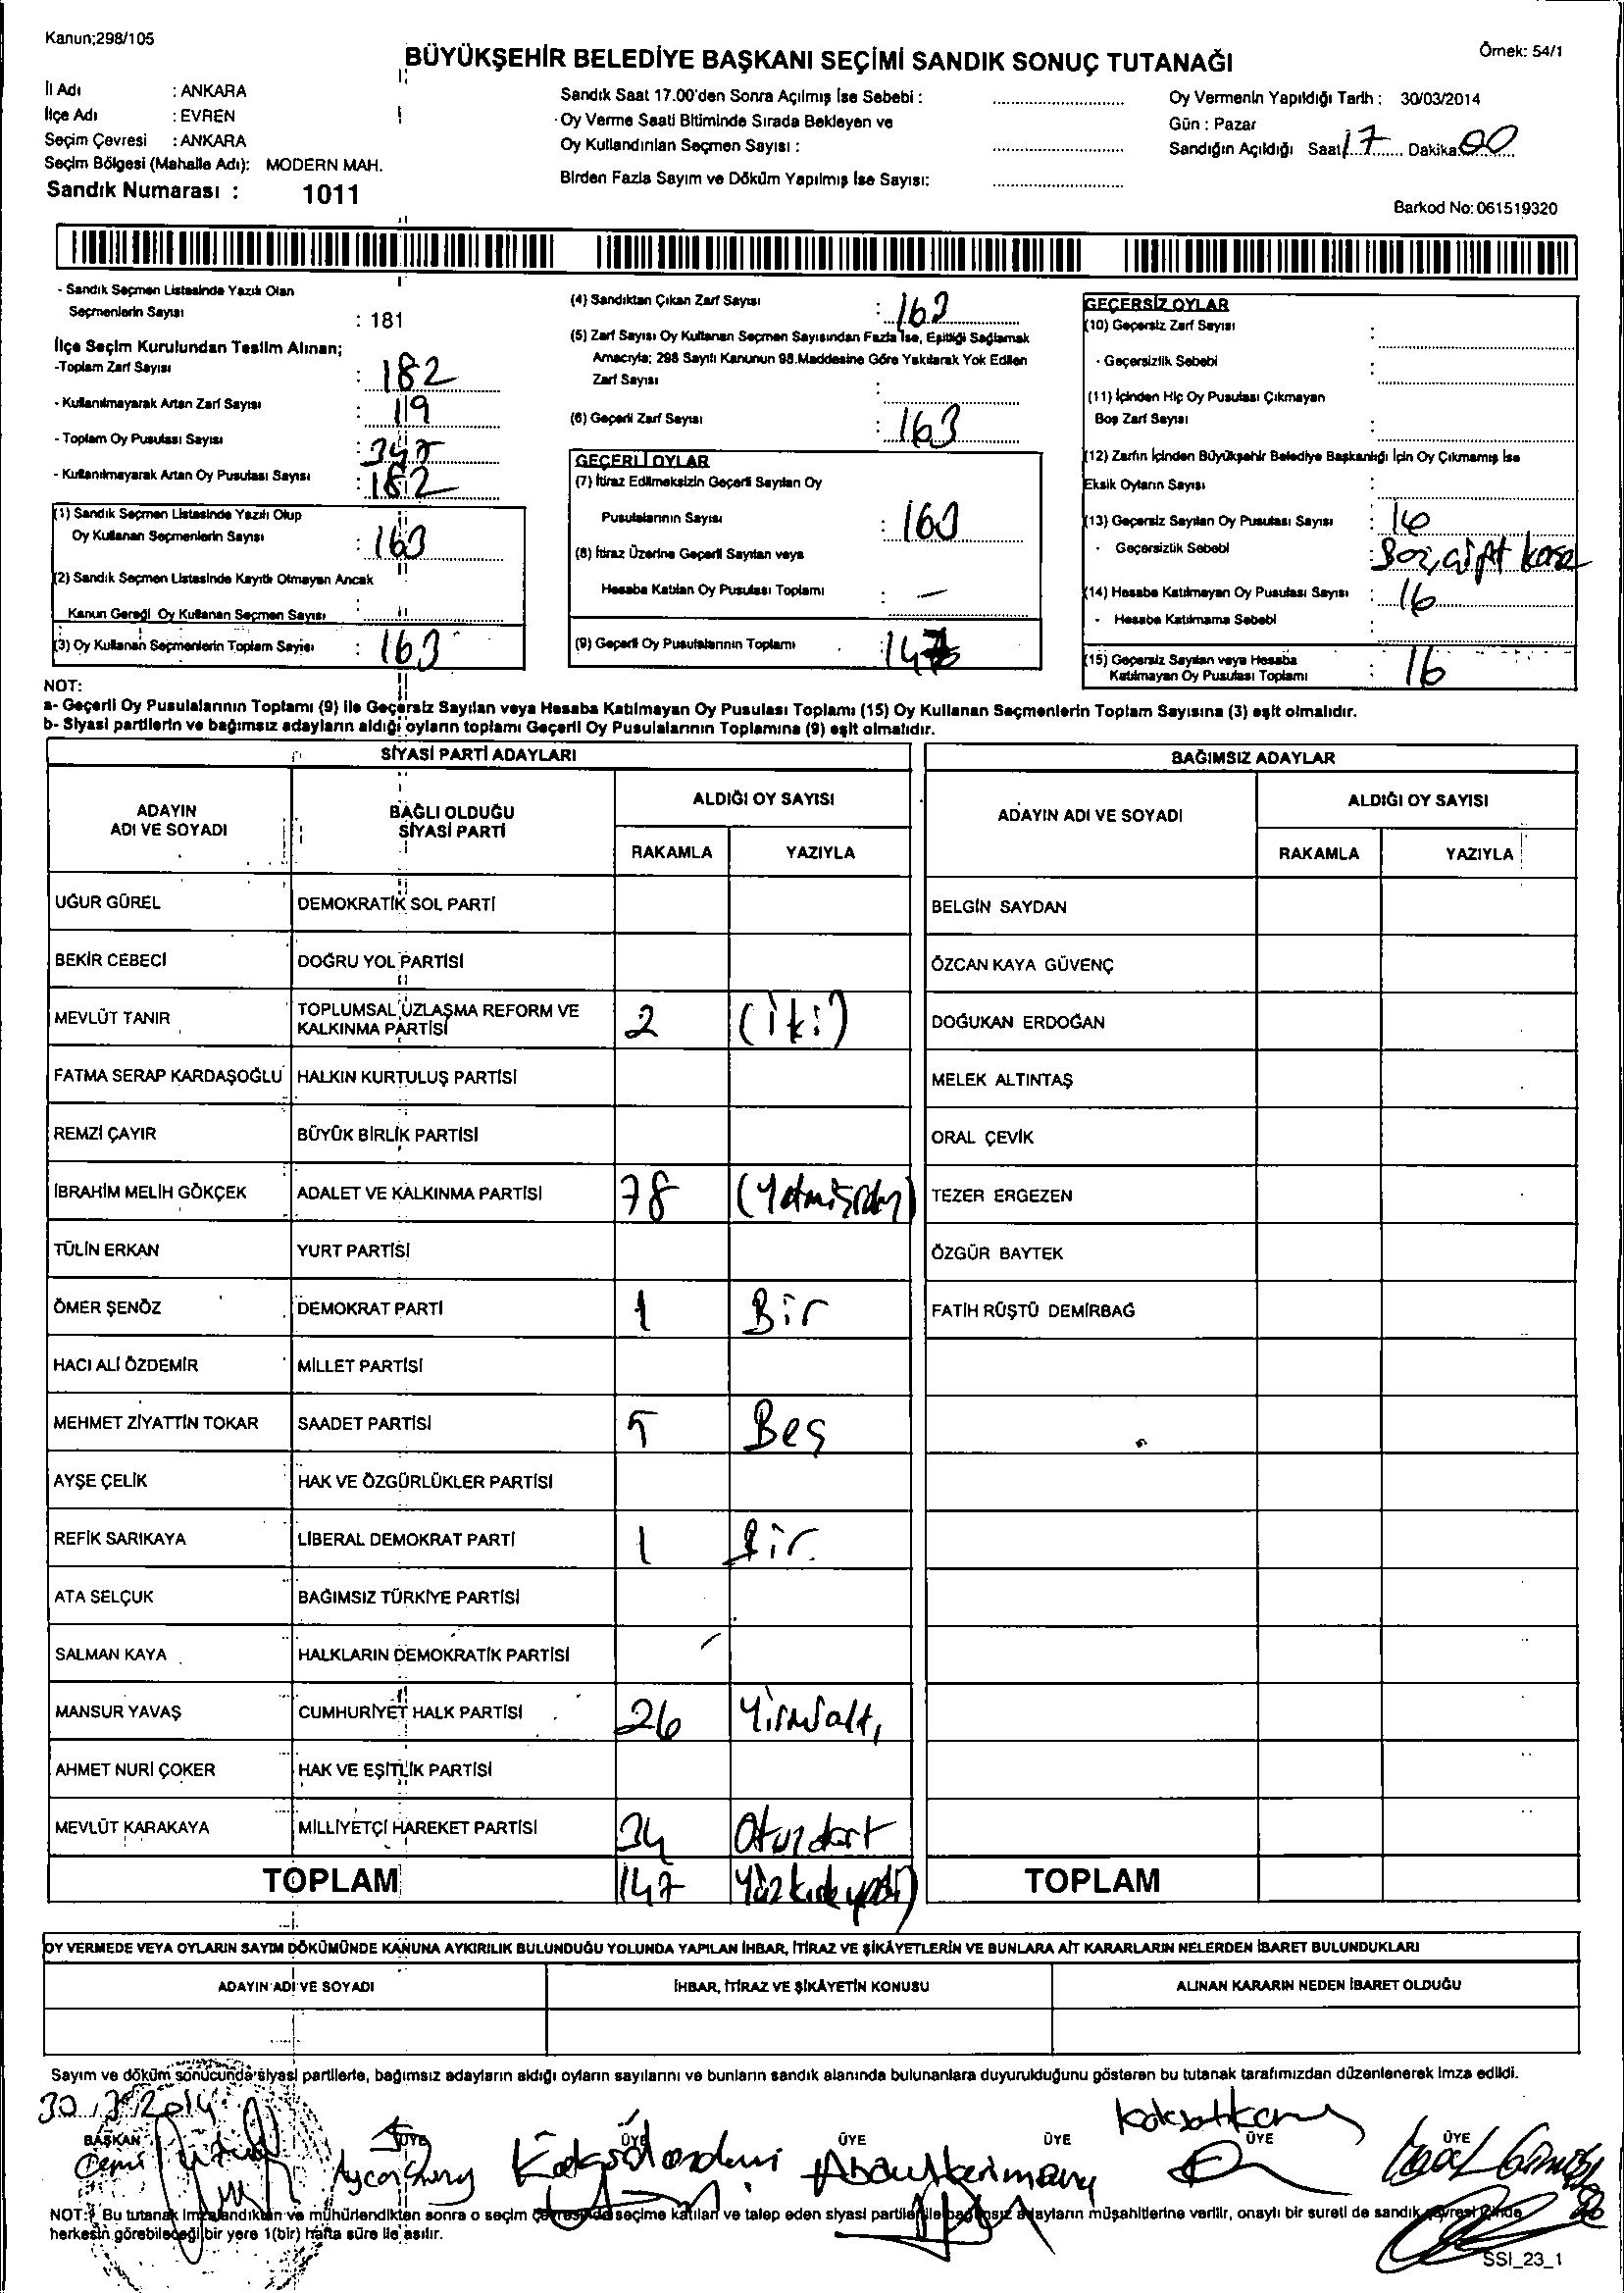 Kanun;298/105
BÜYÜKŞEHİR BELEDİYE BAŞKANI SEÇİMİ SANDIK SONUÇ TUTANAĞI
Örnek: 54/1
İl Adı : ANKARA
İlçe Adı : EVREN
Seçim Çevresi : ANKARA
Seçim Bölgesi (Mahalle Adı): MODERN MAH.
Sandık Numarası : 1011
Sandık Saat 17.00'den Sonra Açılmış İse Sebebi :
Oy Verme Saati Bitiminde Sırada Bekleyen ve
Oy Kullandırılan Seçmen Sayısı :
Birden Fazla Sayım ve Döküm Yapılmış İse Sayısı:
Oy Vermenin Yapıldığı Tarih : 30/03/2014
Gün : Pazar
Sandığın Açıldığı Saat 17 Dakika 00
Barkod No: 061519320
- Sandık Seçmen Listesinde Yazılı Olan
Seçmenlerin Sayısı : 181
İlçe Seçim Kurulundan Teslim Alınan;
-Toplam Zarf Sayısı : 182
- Kullanılmayarak Artan Zarf Sayısı : 19
- Toplam Oy Pusulası Sayısı : 347
- Kullanılmayarak Artan Oy Pusulası Sayısı : 182
(1) Sandık Seçmen Listesinde Yazılı Olup
Oy Kullanan Seçmenlerin Sayısı : 163
(2) Sandık Seçmen Listesinde Kayıtlı Olmayan Ancak
Kanun Gereği Oy Kullanan Seçmen Sayısı :
(3) Oy Kullanan Seçmenlerin Toplam Sayısı : 163
(4) Sandıktan Çıkan Zarf Sayısı : 163
(5) Zarf Sayısı Oy Kullanan Seçmen Sayısından Fazla İse, Eşitliği Sağlamak
Amacıyla; 298 Sayılı Kanunun 98.Maddesine Göre Yakılarak Yok Edilen
Zarf Sayısı :
(6) Geçerli Zarf Sayısı : 163
GEÇERLİ OYLAR
(7) İtiraz Edilmeksizin Geçerli Sayılan Oy
Pusulalarının Sayısı : 163
(8) İtiraz Üzerine Geçerli Sayılan veya
Hesaba Katılan Oy Pusulası Toplamı : —
(9) Geçerli Oy Pusulalarının Toplamı : 147
GEÇERSİZ OYLAR
(10) Geçersiz Zarf Sayısı :
- Geçersizlik Sebebi :
(11) İçinden Hiç Oy Pusulası Çıkmayan
Boş Zarf Sayısı :
(12) Zarfın İçinden Büyükşehir Belediye Başkanlığı İçin Oy Çıkmamış İse
Eksik Oyların Sayısı :
(13) Geçersiz Sayılan Oy Pusulası Sayısı : 16
- Geçersizlik Sebebi :
(14) Hesaba Katılmayan Oy Pusulası Sayısı : 16
- Hesaba Katılmama Sebebi :
(15) Geçersiz Sayılan veya Hesaba
Katılmayan Oy Pusulası Toplamı : 16
NOT:
a- Geçerli Oy Pusulalarının Toplamı (9) ile Geçersiz Sayılan veya Hesaba Katılmayan Oy Pusulası Toplamı (15) Oy Kullanan Seçmenlerin Toplam Sayısına (3) eşit olmalıdır.
b- Siyasi partilerin ve bağımsız adayların aldığı oyların toplamı Geçerli Oy Pusulalarının Toplamına (9) eşit olmalıdır.
SİYASİ PARTİ ADAYLARI
ADAYIN ADI VE SOYADI BAĞLI OLDUĞU SİYASİ PARTİ ALDIĞI OY SAYISI RAKAMLA YAZIYLA
UĞUR GÜREL DEMOKRATİK SOL PARTİ
BEKİR CEBECİ DOĞRU YOL PARTİSİ
MEVLÜT TANIR TOPLUMSAL UZLAŞMA REFORM VE KALKINMA PARTİSİ 2 (iki)
FATMA SERAP KARDAŞOĞLU HALKIN KURTULUŞ PARTİSİ
REMZİ ÇAYIR BÜYÜK BİRLİK PARTİSİ
İBRAHİM MELİH GÖKÇEK ADALET VE KALKINMA PARTİSİ 78
TÜLİN ERKAN YURT PARTİSİ
ÖMER ŞENÖZ DEMOKRAT PARTİ 1 Bir
HACI ALİ ÖZDEMİR MİLLET PARTİSİ
MEHMET ZİYATTİN TOKAR SAADET PARTİSİ 5 Beş
AYŞE ÇELİK HAK VE ÖZGÜRLÜKLER PARTİSİ
REFİK SARIKAYA LİBERAL DEMOKRAT PARTİ 1 Bir.
ATA SELÇUK BAĞIMSIZ TÜRKİYE PARTİSİ
SALMAN KAYA HALKLARIN DEMOKRATİK PARTİSİ
MANSUR YAVAŞ CUMHURİYET HALK PARTİSİ 26 Yirmialtı
AHMET NURİ ÇOKER HAK VE EŞİTLİK PARTİSİ
MEVLÜT KARAKAYA MİLLİYETÇİ HAREKET PARTİSİ 34 Otuzdört
TOPLAM 147
BAĞIMSIZ ADAYLAR
ADAYIN ADI VE SOYADI ALDIĞI OY SAYISI RAKAMLA YAZIYLA
BELGİN SAYDAN
ÖZCAN KAYA GÜVENÇ
DOĞUKAN ERDOĞAN
MELEK ALTINTAŞ
ORAL ÇEVİK
TEZER ERGEZEN
ÖZGÜR BAYTEK
FATİH RÜŞTÜ DEMİRBAĞ
TOPLAM
OY VERMEDE VEYA OYLARIN SAYIM DÖKÜMÜNDE KANUNA AYKIRILIK BULUNDUĞU YOLUNDA YAPILAN İHBAR, İTİRAZ VE ŞİKÂYETLERİN VE BUNLARA AİT KARARLARIN NELERDEN İBARET BULUNDUKLARI
ADAYIN ADI VE SOYADI İHBAR, İTİRAZ VE ŞİKÂYETİN KONUSU ALINAN KARARIN NEDEN İBARET OLDUĞU
Sayım ve döküm sonucunda siyasi partilerle, bağımsız adayların aldığı oyların sayılarını ve bunların sandık alanında bulunanlara duyurulduğunu gösteren bu tutanak tarafımızdan düzenlenerek imza edildi.
30.3.2014
BAŞKAN ÜYE ÜYE ÜYE ÜYE ÜYE ÜYE
NOT: Bu tutanak imzalandıktan ve mühürlendikten sonra o seçim çevresinde seçime katılan ve talep eden siyasi partiler ile bağımsız adayların müşahitlerine verilir, onaylı bir sureti de sandık çevresi içinde
herkesin görebileceği bir yere 1(bir) hafta süre ile asılır.
SSI_23_1